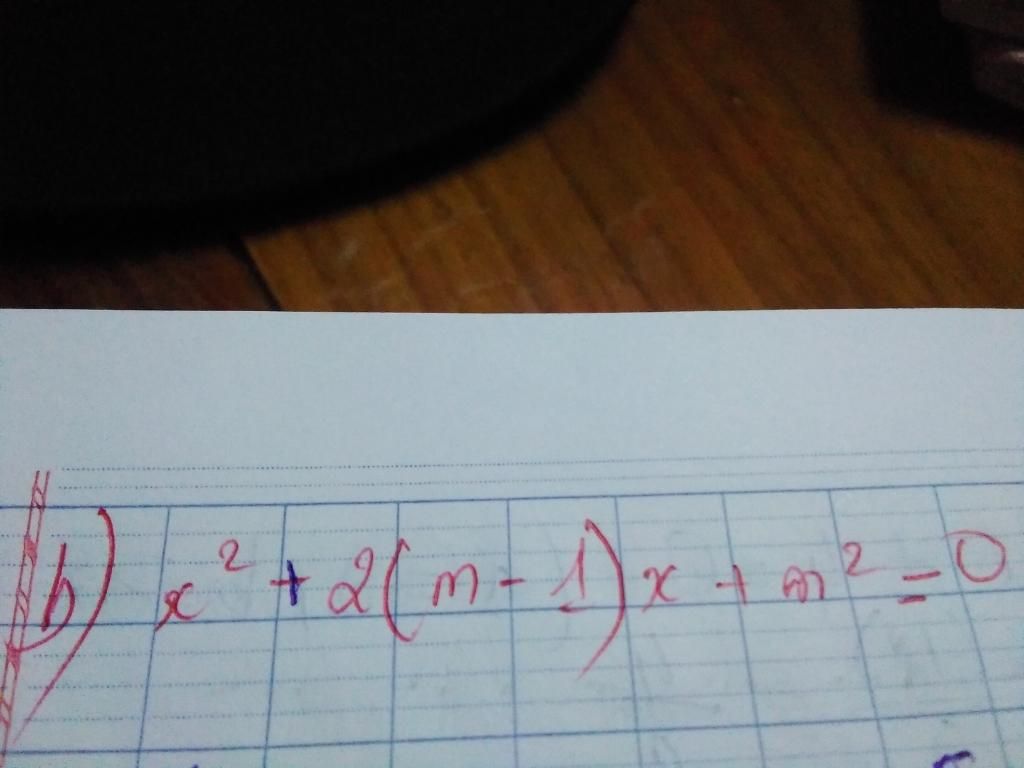 b) x² + 2(m - 1)x + m² = 0